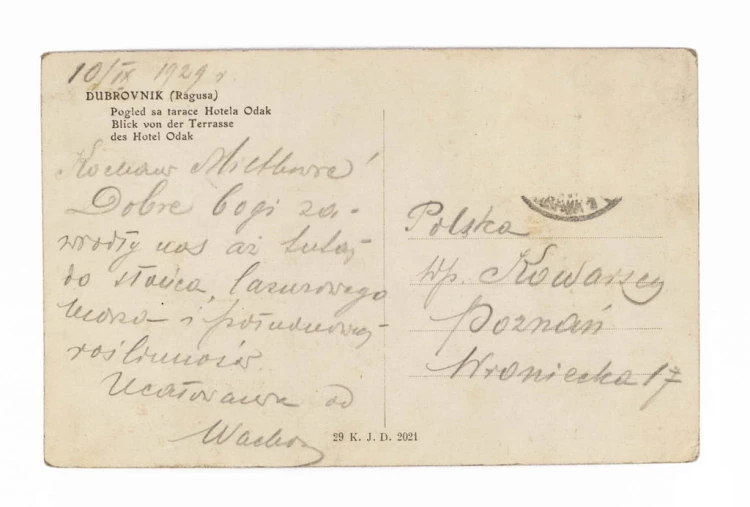 10/IX 1929 r.
DUBROVNIK (Ragusa)
Pogled sa tarace Hotela Odak
Blick von der Terrasse
des Hotel Odak
Dobre bogi za-
wiodły nas aż tutaj
do słońca, lazurowego
morza i południowej
roślinności.
Ucałowania od
Polska
Wp. Kowarscy
Poznań
Wroniecka 17
29 K. J. D. 2021